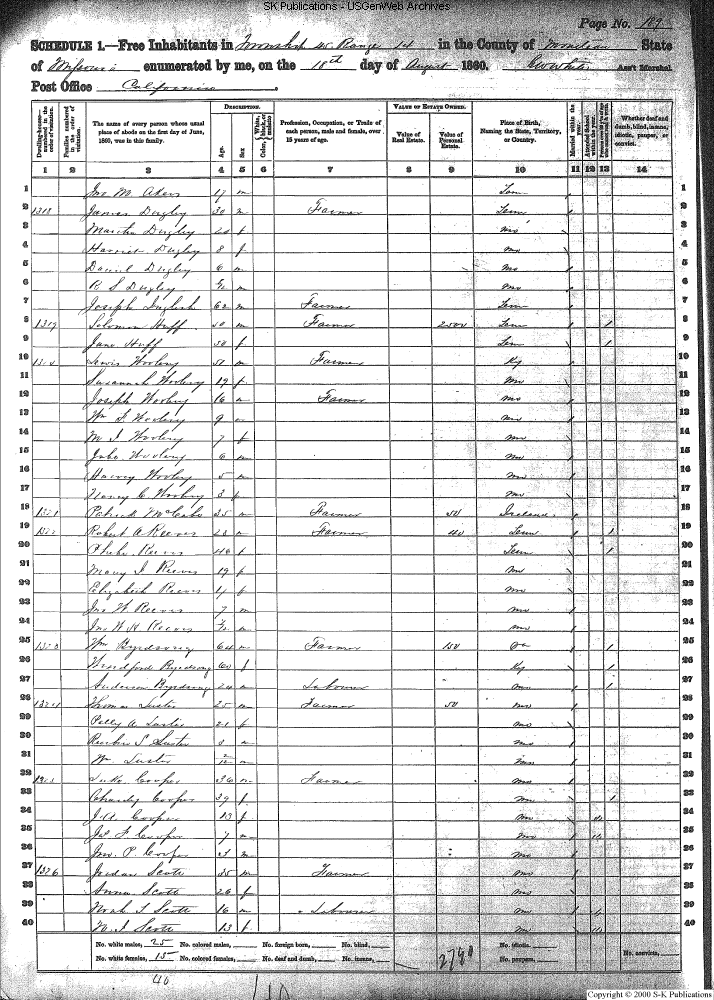 SK Publications - USGenWeb Archives
Page No. 189
SCHEDULE 1.—Free Inhabitants in Township 45 Range 14 in the County of Moniteau State
of Missouri enumerated by me, on the 18th day of August 1860. Ass't Marshal.
Post Office California.
Dwelling-houses—numbered in the order of visitation. Families numbered in the order of visitation. The name of every person whose usual place of abode on the first day of June, 1860, was in this family. DESCRIPTION. Age. Sex. Color, White, black, or mulatto. Profession, Occupation, or Trade of each person, male and female, over 15 years of age. VALUE OF ESTATE OWNED. Value of Real Estate. Value of Personal Estate. Place of Birth, Naming the State, Territory, or Country. Married within the year. Attended School within the year. Whether deaf and dumb, blind, insane, idiotic, pauper, or convict.
1 2 3 4 5 6 7 8 9 10 11 12 13 14
1 Jno M Akers 17 m Tenn 1
2 1318 James 30 m Farmer Tenn 2
3 Martha f Mo 3
4 Harriet 8 f Mo 4
5 Daniel 6 m Mo 5
6 R S m Mo 6
7 Joseph English 62 m Farmer Tenn 7
8 1319 Solomon Huff 50 m Farmer 2500 Tenn 8
9 Jane Huff 50 f Tenn 9
10 Lewis Woolery 51 m Farmer Ky 10
11 Susannah Woolery 19 f Mo 11
12 Joseph Woolery 16 m Farmer Mo 12
13 Wm F Woolery 9 m Mo 13
14 M J Woolery 7 f Mo 14
15 Woolery 6 m Mo 15
16 Harvey Woolery 5 m Mo 16
17 Nancy C Woolery 3 f Mo 17
18 1321 Patrick McCabe 35 m Farmer 50 Ireland 18
19 1322 Robert A Reeves m Farmer 40 Tenn 19
20 Phebe Reeves 46 f Tenn 20
21 Mary J Reeves 19 f Mo 21
22 Elizabeth Reeves 14 f Mo 22
23 Jno W Reeves 7 m Mo 23
24 Reeves m Mo 24
25 1323 Wm Byrdsong 64 m Farmer 150 Va 25
26 Byrdsong 60 f Ky 26
27 Anderson Byrdsong 20 m Labourer Mo 27
28 1324 Thomas Luster 25 m Farmer 50 Mo 28
29 Polly A Luster 21 f Mo 29
30 Reuben S Luster 3 m Mo 30
31 Wm Luster 2/12 m Mo 31
32 1325 Luke Cooper 36 m Farmer Mo 32
33 Charity Cooper 39 f Mo 33
34 J A Cooper 13 f Mo 34
35 Jas F Cooper 7 m Mo 35
36 Jno P Cooper m Mo 36
37 1326 Jordan Scott 35 m Farmer Mo 37
38 Anna Scott 26 f Mo 38
39 Noah T Scott 16 m Labourer Mo 39
40 M J Scott 13 f Mo 40
No. white males, 25 No. colored males, No. foreign born, No. blind, No. idiotic,
No. white females, 15 No. colored females, No. deaf and dumb, No. insane, 2790 No. paupers, No. convicts,
40
Copyright © 2000 S-K Publications